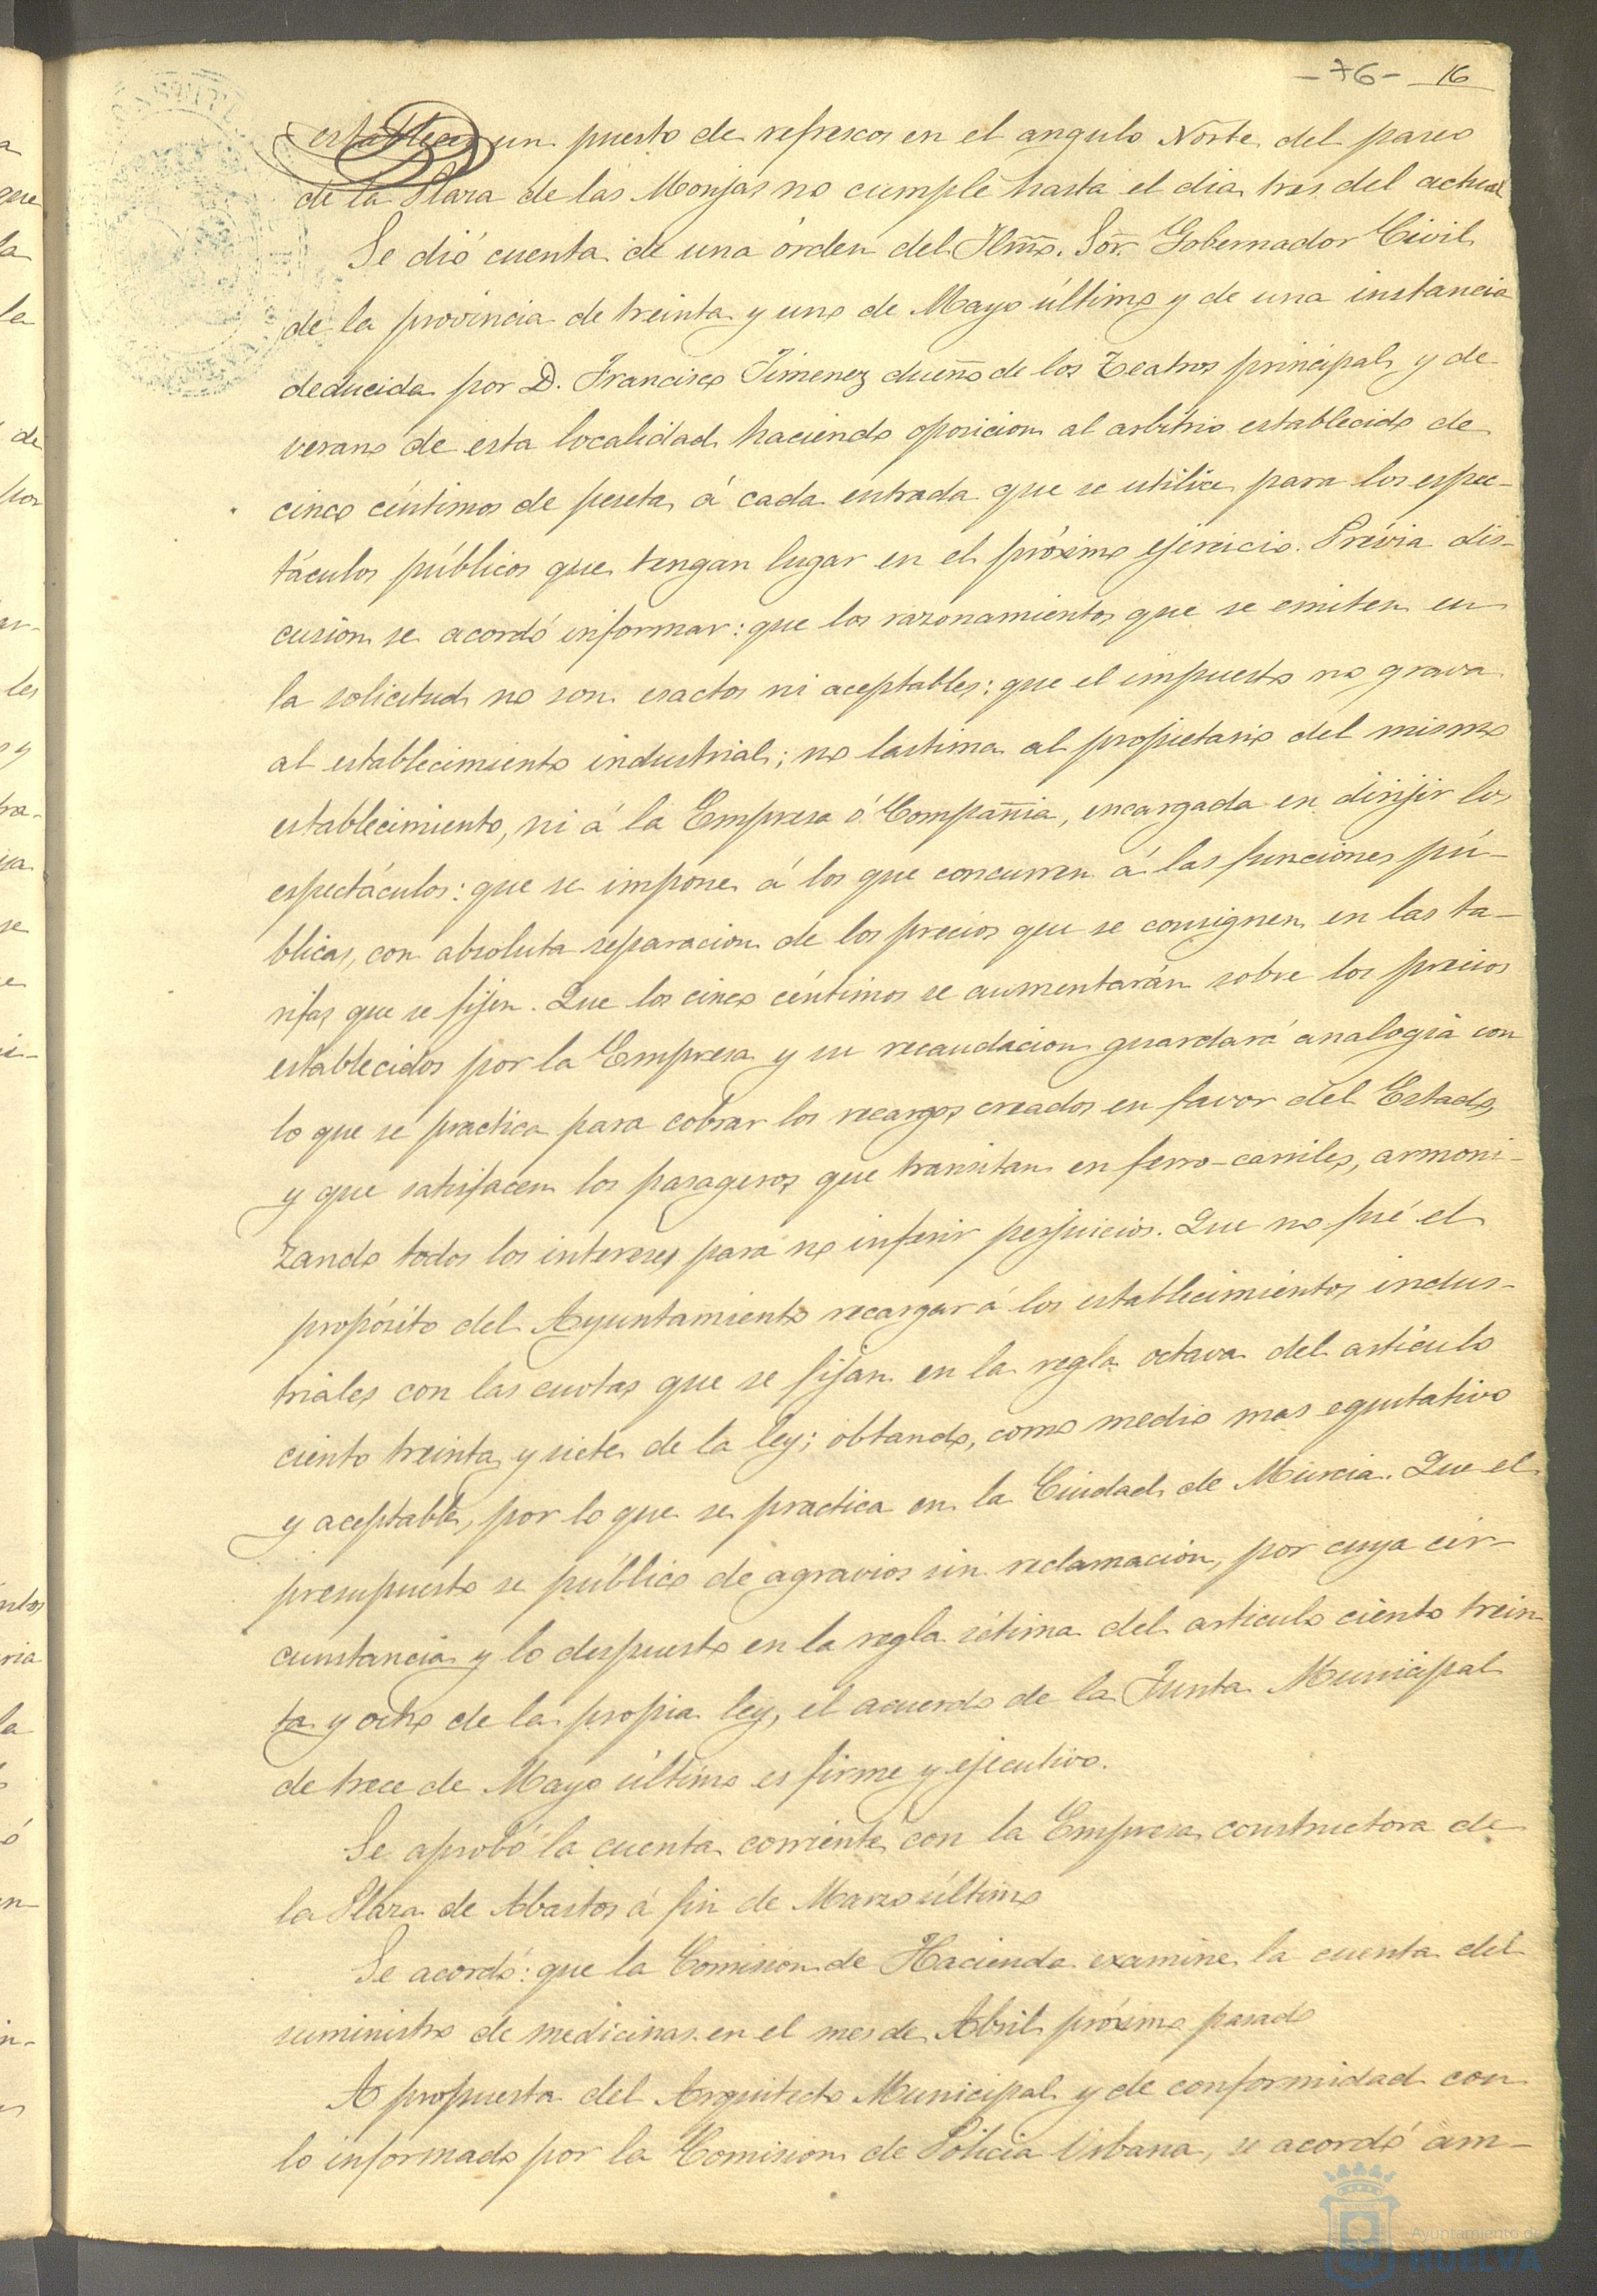 -76- 16
establecer un puesto de refrescos en el angulo Norte del paseo
de la Plaza de las Monjas no cumple hasta el dia tres del actual
Se dió cuenta de una órden del Iltmo. Sor. Gobernador Civil
de la provincia de treinta y uno de Mayo último y de una instancia
deducida por D. Francisco Jimenez dueño de los Teatros principal y de
verano de esta localidad haciendo oposicion al arbitrio establecido de
cinco céntimos de peseta á cada entrada que se utilice para los espec-
táculos públicos que tengan lugar en el próximo ejercicio. Prévia dis-
cusion se acordó informar: que los razonamientos que se emiten en
la solicitud no son esactos ni aceptables; que el impuesto no grava
al establecimiento industrial; no lastima al propietario del mismo
establecimiento, ni á la Empresa ó Compañia, encargada en dirijir los
espectáculos: que se impone á los que concurren á las funciones pú-
blicas, con absoluta separacion de los precios que se consignen en las ta-
rifas que se fijen. Que los cinco céntimos se aumentarán sobre los precios
establecidos por la Empresa y su recaudacion guardará analogia con
lo que se practica para cobrar los recargos creados en favor del Estado,
y que satisfacen los pasageros que transitan en ferro-carriles, armoni-
zando todos los intereses para no inferir perjuicios. Que no fué el
propósito del Ayuntamiento recargar á los establecimientos indus-
triales con las cuotas que se fijan en la regla octava del artículo
ciento treinta y siete de la ley; obtando, como medio mas equitativo
y aceptable, por lo que se practica en la Ciudad de Murcia. Que el
presupuesto se público de agravios sin reclamación, por cuya cir-
cunstancia y lo despuesto en la regla sétima del articulo ciento trein-
ta y ocho de la propia ley, el acuerdo de la Junta Municipal
de trece de Mayo último es firme y ejecutivo.
Se aprobó la cuenta corriente con la Empresa constructora de
la Plaza de Abastos á fin de Marzo último
Se acordó: que la Comision de Hacienda examine la cuenta del
suministro de medicinas en el mes de Abril próximo pasado
A propuesta del Arquitecto Municipal y de conformidad con
lo informado por la Comision de Policia Urbana, se acordó am-
Ayuntamiento de
HUELVA